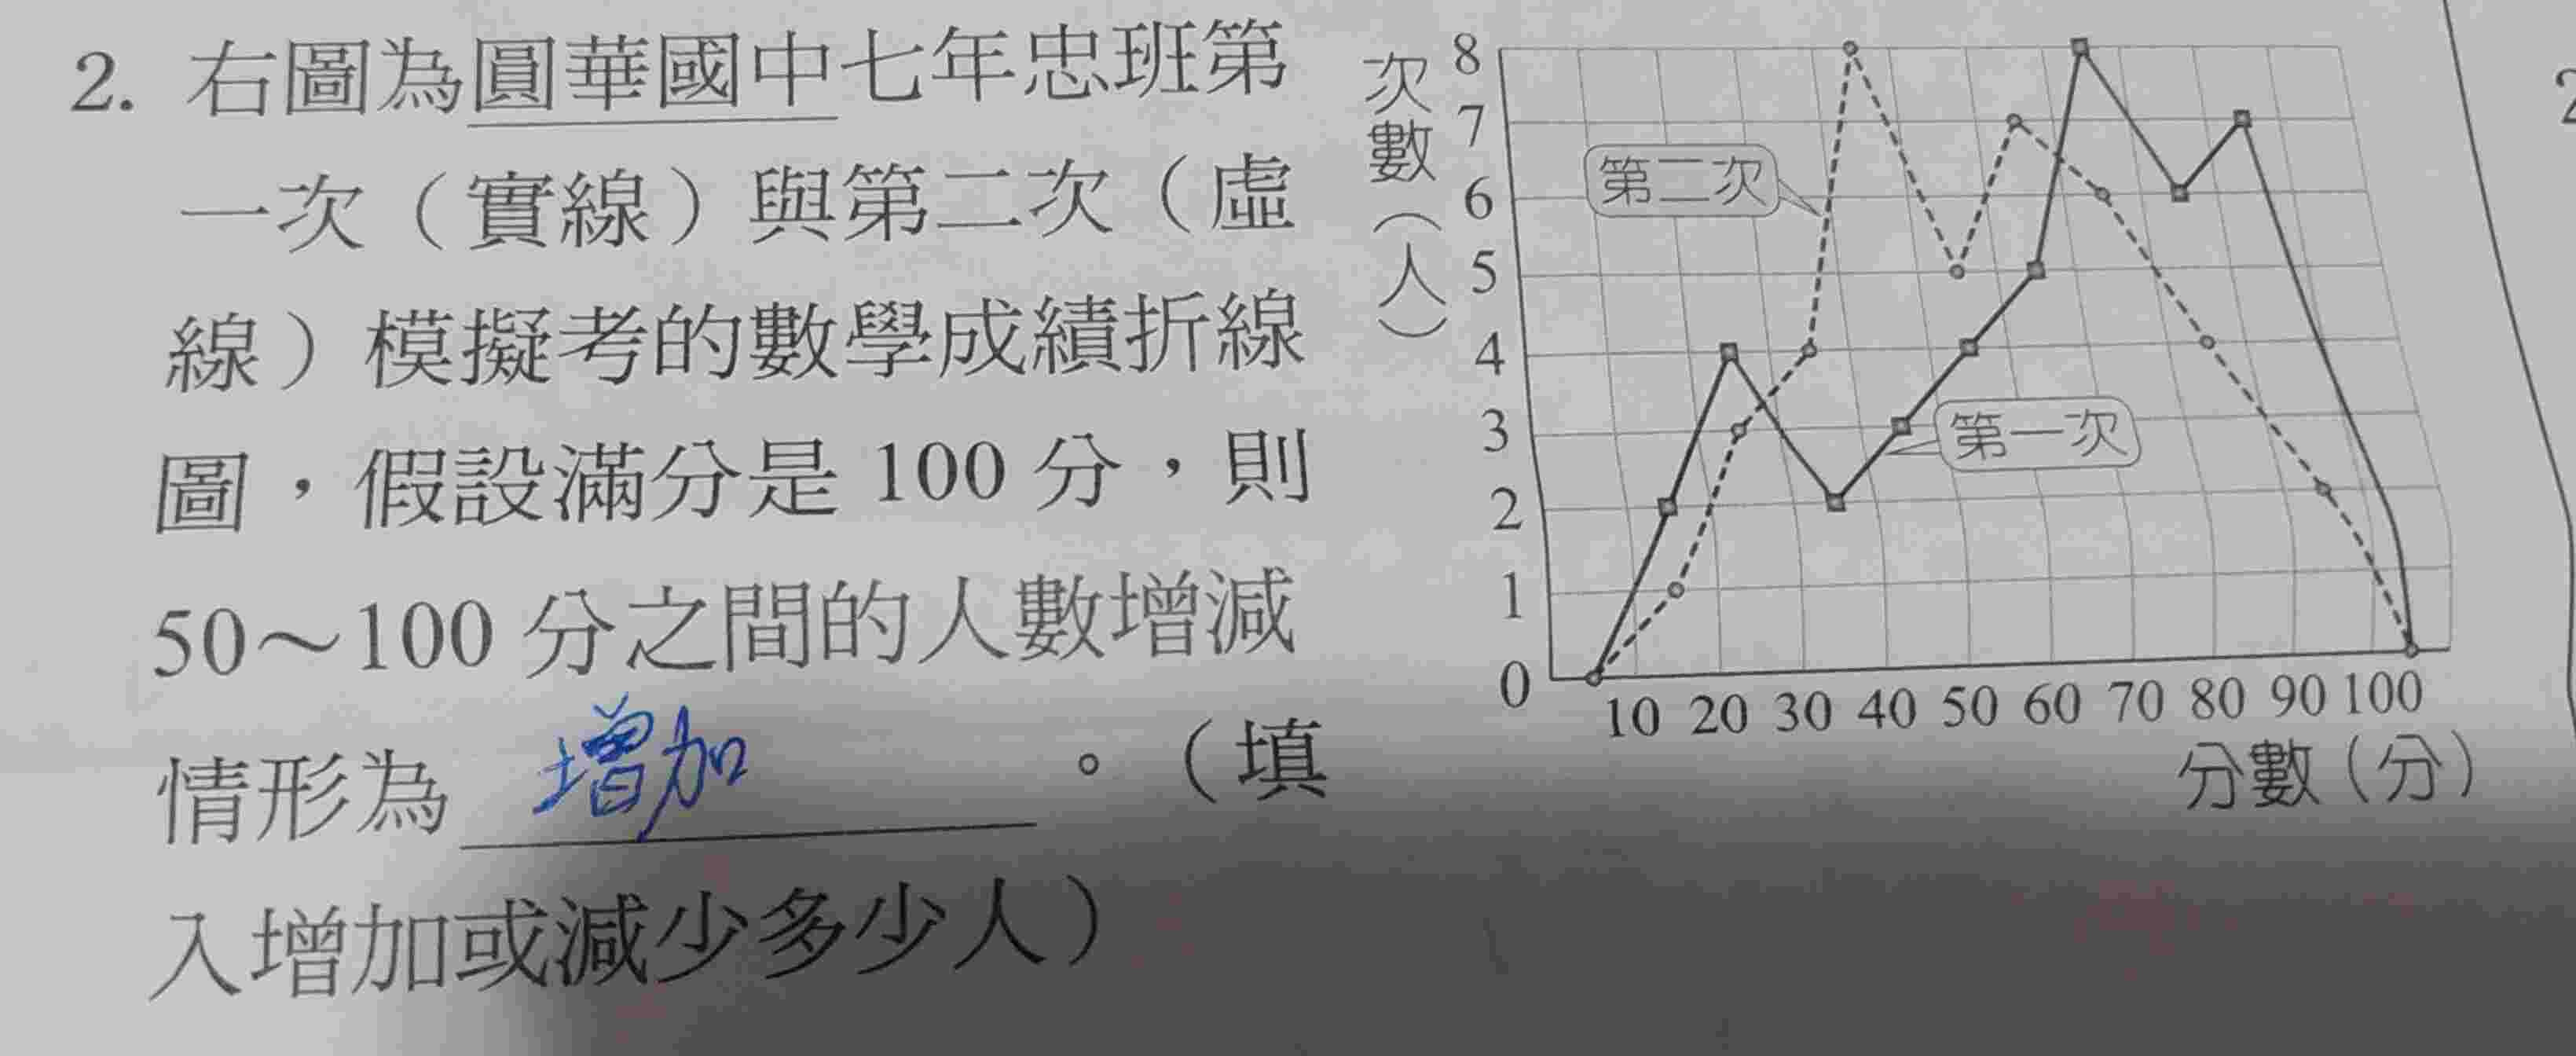 2. 右圖為圓華國中七年忠班第
一次（實線）與第二次（虛
線）模擬考的數學成績折線
圖，假設滿分是 100 分，則
50～100 分之間的人數增減
情形為 增加 。（填
入增加或減少多少人）
次數（人）
8
7
6
5
4
3
2
1
0
第二次
第一次
10 20 30 40 50 60 70 80 90 100
分數（分）